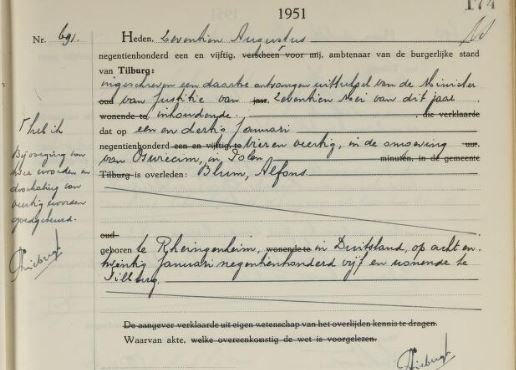 1951
174
Nr. 691. Heden, Zeventien Augustus
negentienhonderd een en vijftig, verscheen voor mij, ambtenaar van de burgerlijke stand
van Tilburg:
ingeschreven een daartoe ontvangen uittreksel van de Minister
oud van Justitie van jaar, Zeventien Mei van dit jaar
wonende te inhoudende die verklaarde
dat op een en dertig Januari
negentienhonderd een en vijftig te vier en veertig, in de omgeving uur
van Oswiecim, in Polen minuten, in de gemeente
Tilburg is overleden: Blum, Alfons
oud
geboren te Rheingenheim, wonende te in Duitsland, op acht en
twintig Januari negentienhonderd vijf en wonende te
Tilburg.
De aangever verklaarde uit eigen wetenschap van het overlijden kennis te dragen.
Waarvan akte, welke overeenkomstig de wet is voorgelezen.
Bijvoeging van
twee woorden en
doorhaling van
veertig woorden
goedgekeurd.